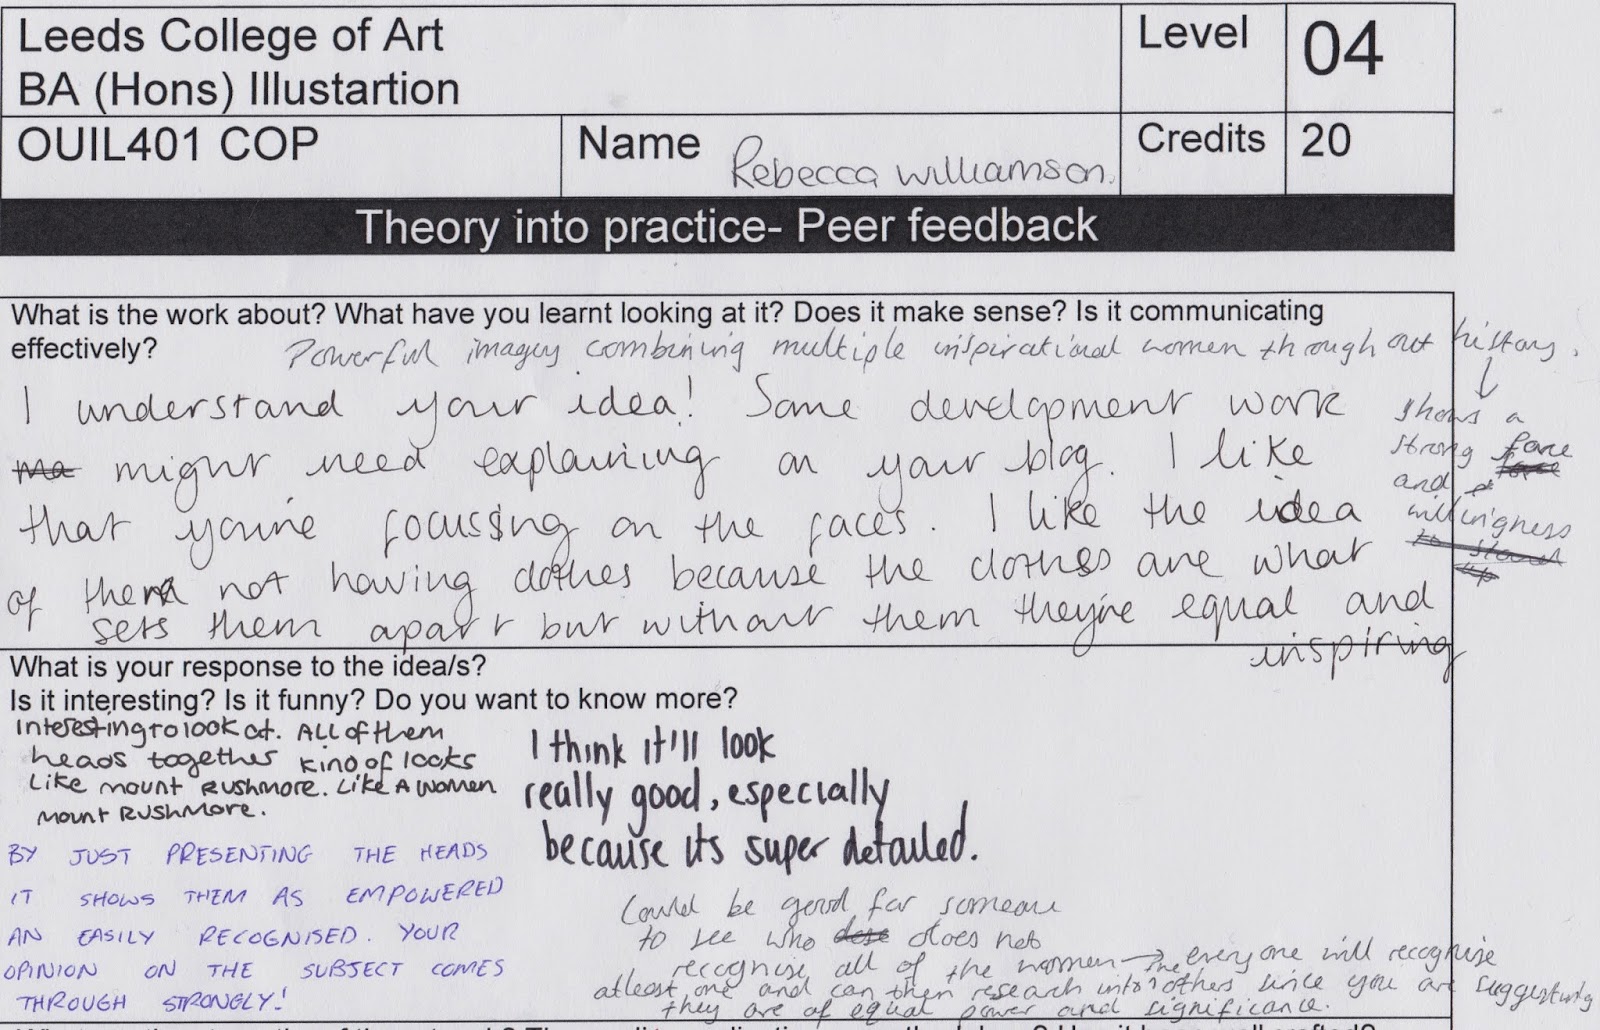 Leeds College of Art
BA (Hons) Illustartion
Level
04
OUIL401 COP
Name
Rebecca Williamson.
Credits
20
Theory into practice- Peer feedback
What is the work about? What have you learnt looking at it? Does it make sense? Is it communicating
effectively?
Powerful imagery combining multiple inspirational women through out history.
shows a
strong
and
willingness
to stand
up
I understand your idea! Some development work
ma might need explaining on your blog. I like
that you're focussing on the faces. I like the idea
of them not having clothes because the clothes are what
sets them apart but without them they're equal and
inspiring
What is your response to the idea/s?
Is it interesting? Is it funny? Do you want to know more?
Interesting to look at. ALL of them
heads together kind of looks
Like mount Rushmore. Like A women
mount Rushmore.
I think it'll look
really good, especially
because its super detailed.
BY JUST PRESENTING THE HEADS
IT SHOWS THEM AS EMPOWERED
AN EASILY RECOGNISED. YOUR
OPINION ON THE SUBJECT COMES
THROUGH STRONGLY!
Could be good for someone
to see who does not
recognise all of the women → everyone will recognise
atleast one and can then research into the others since you are suggesting
they are of equal power and significance.